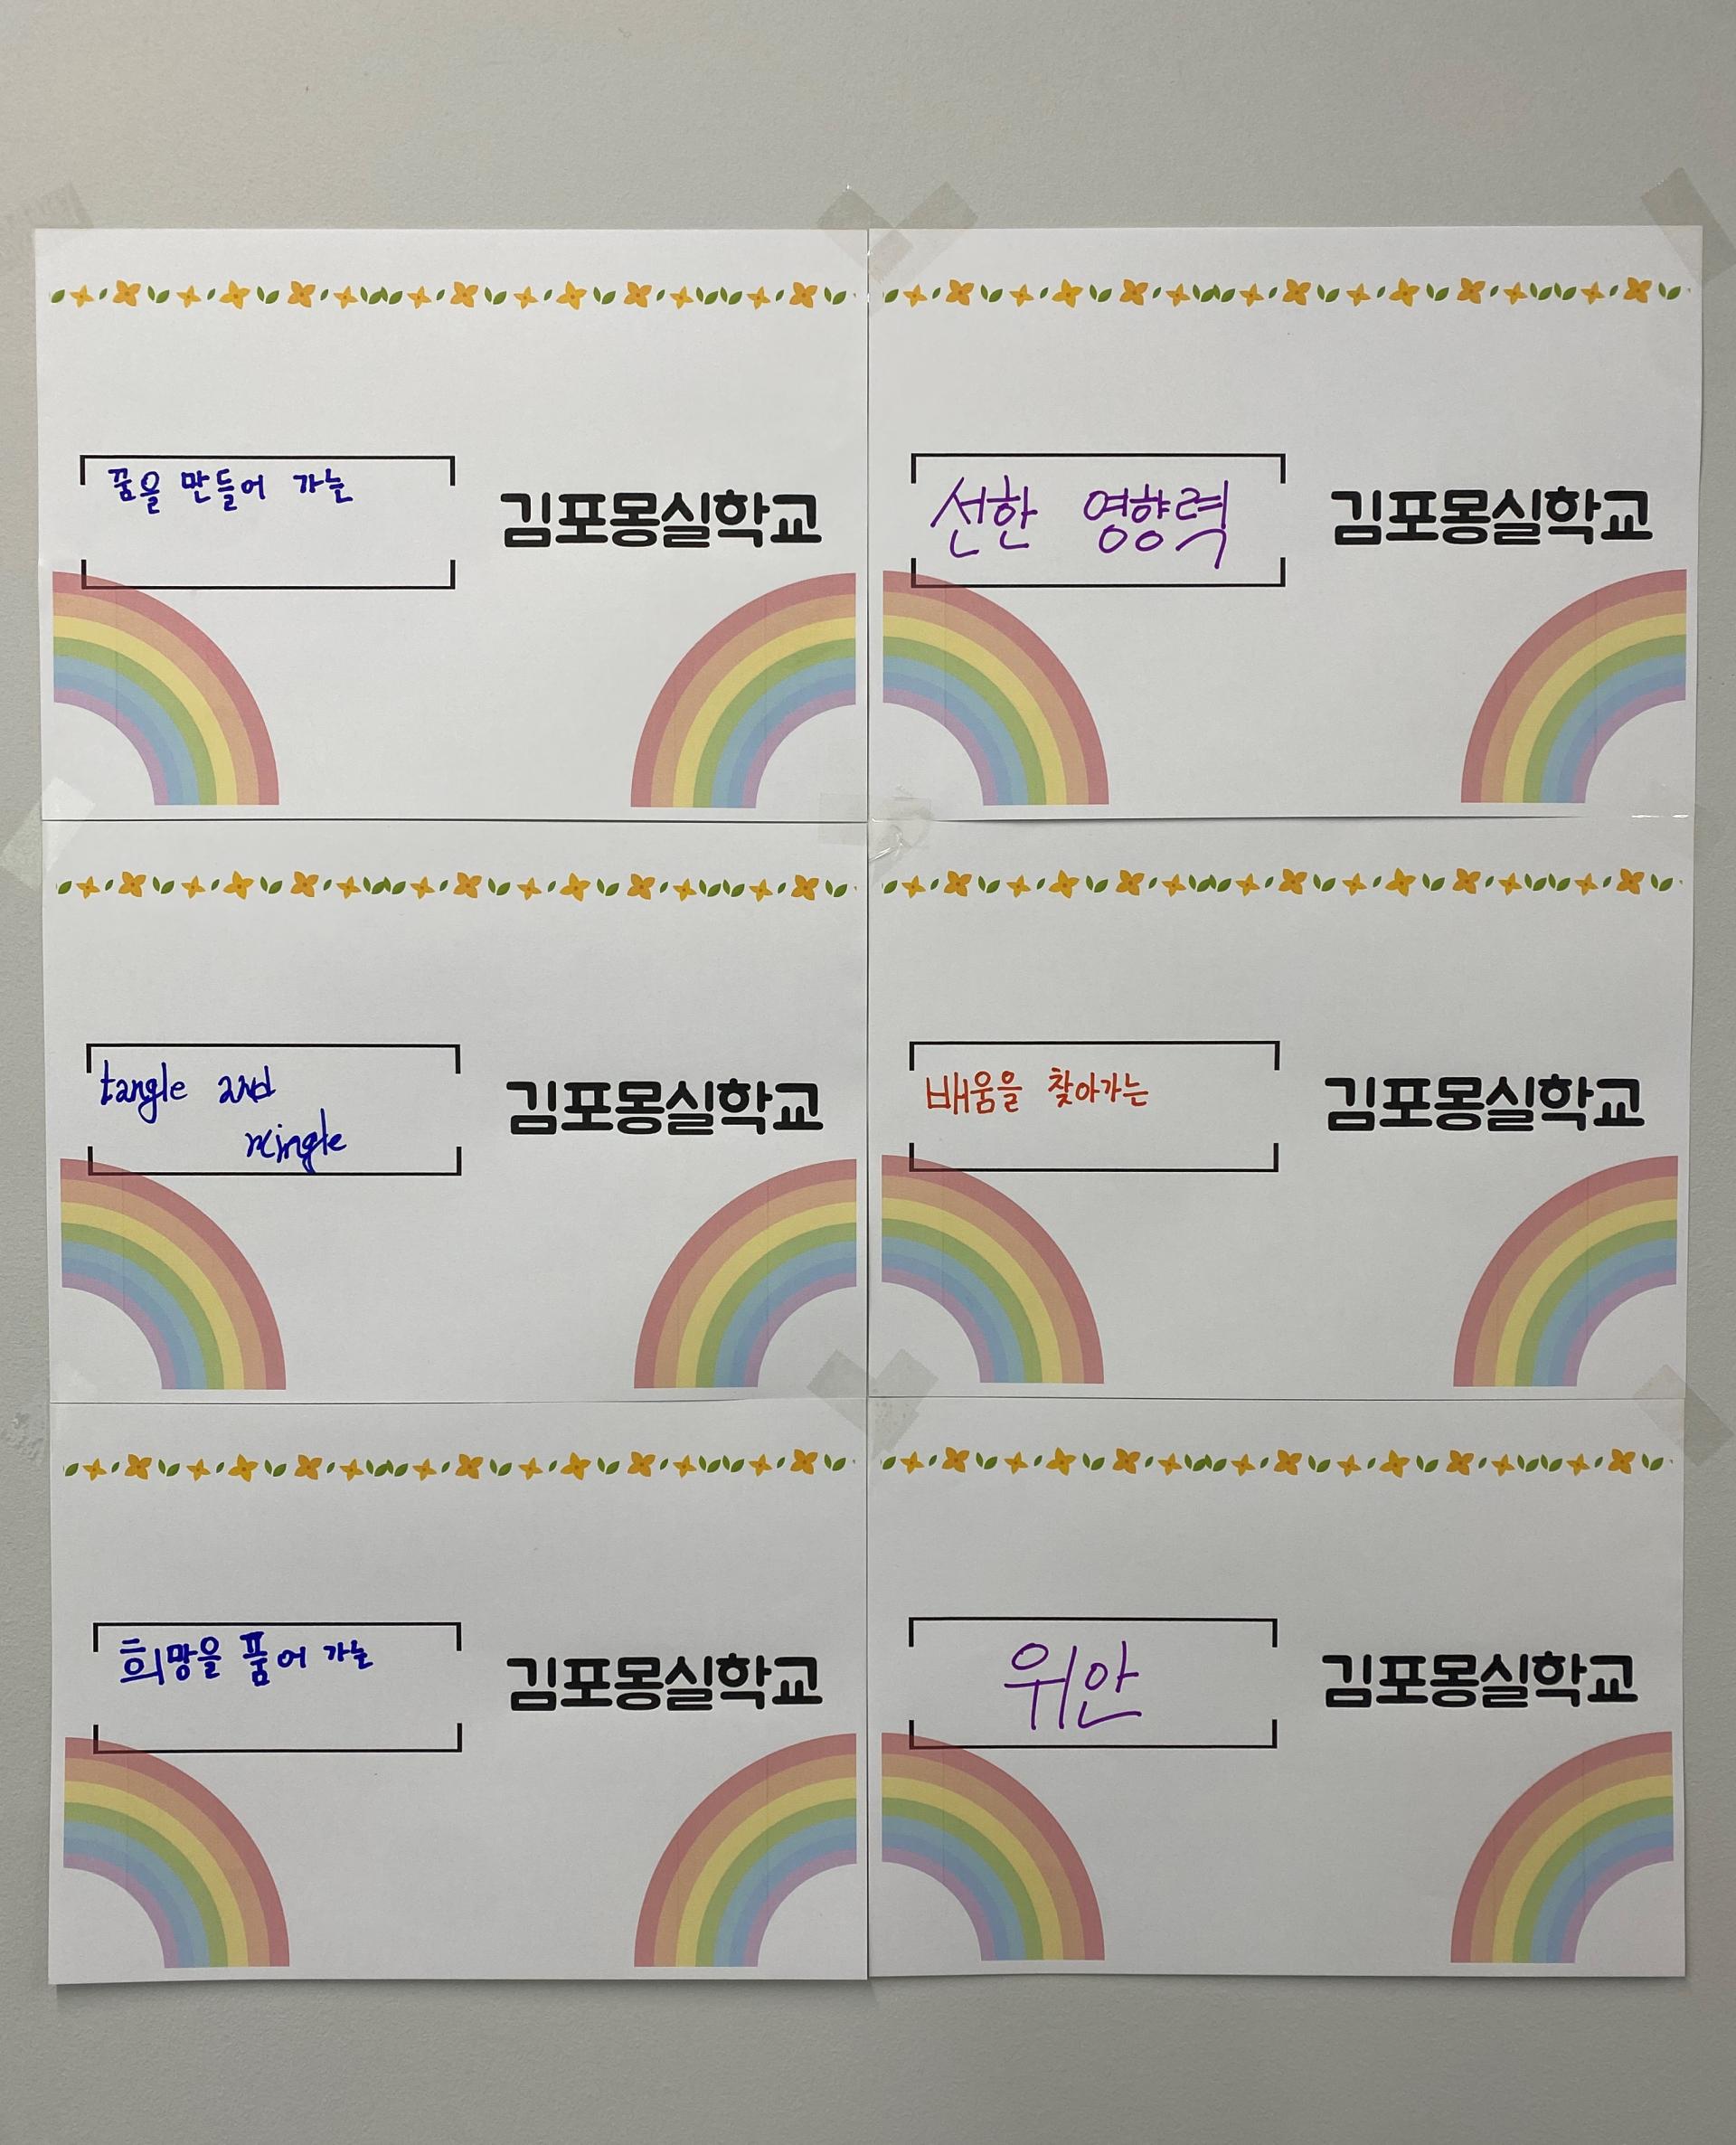 꿈을 만들어 가는
김포몽실학교
선한 영향력
김포몽실학교
tangle and
mingle
김포몽실학교
배움을 찾아가는
김포몽실학교
희망을 품어 가는
김포몽실학교
위안
김포몽실학교